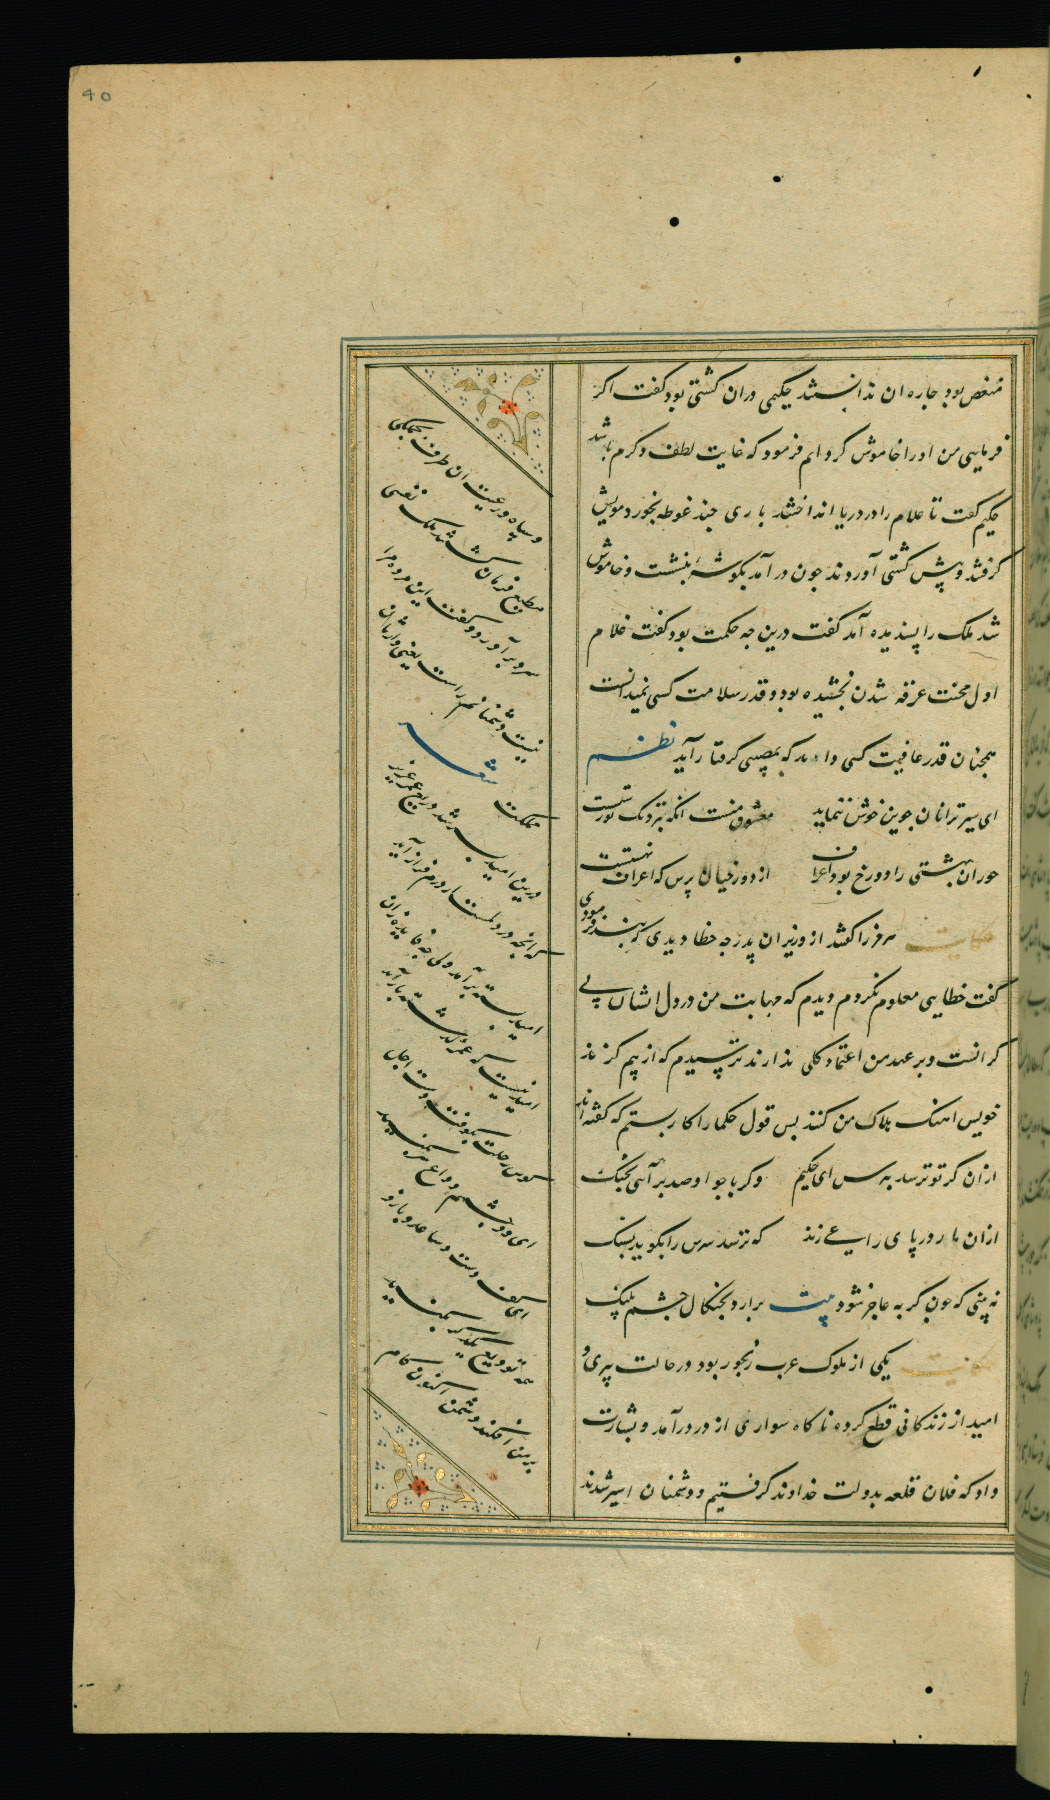 40
منغص بود چاره ان ندانستند حکیمی دران کشتی بود گفت اکر
فرمایی من اورا خاموش کردانم فرمود که غایت لطف و کرم باشد
حکیم گفت تا غلام را در دریا انداختند باری چند غوطه بخورد مویش
گرفتند و پیش کشتی آوردند چون در آمد بکوشهٔ بنشست و خاموش
شد ملک را پسندیده آمد گفت درین چه حکمت بود گفت غلام
اول محنت غرقه شدن نچشیده بود و قدر سلامت کسی نمیدانست
همچنان قدر عافیت کسی داند که بمصیبتی گرفتار آید نظم
ای سیر ترا نان جوین خوش ننماید معشوق منست انکه بنزدیک تو زشتست
حوران بهشتی را دوزخ بود اعراف از دوزخیان پرس که اعراف بهشتست
حکایت هرمز را گفتند از وزیران پدر چه خطا دیدی که بند فرمودی
گفت خطایی معلوم نکردم دیدم که مهابت من در دل ایشان بی
کرانست و بر عهد من اعتماد کلی ندارند ترسیدم که از بیم گزند
خویش اهنگ هلاک من کنند پس قول حکما را کار بستم که گفته اند
ازان کز تو ترسد بترس ای حکیم وگر با چو او صد بر آئی بجنگ
ازان مار بر پای راعی زند که ترسد سرش را بکوبد بسنگ
نه بینی که چون گربه عاجز شود بیت برارد بچنگال چشم پلنگ
حکایت یکی از ملوک عرب رنجور بود در حالت پیری و
امید از زندگانی قطع کرده ناگاه سواری از در درآمد و بشارت
داد که فلان قلعه بدولت خداوند گرفتیم و دشمنان اسیر شدند
و سپاه و رعیت ان طرف بجملگی
مطیع فرمان گشتند ملک نفسی
سرد برآورد و گفت این مژده مرا
نیست دشمنانم راست یعنی وارثان
مملکت شعر
درین امید بسر شد دریغ عمر عزیز
که انچه در دلمست از درم فراز آید
امید بسته برآمد ولی چه فایده زان
امید نیست که عمر گذشته باز آید
کوس رحلت بکوفت دست اجل
ای دو چشمم وداع سر بکنید
ای کف دست و ساعد و بازو
همه تودیع یکدگر بکنید
بر من افکنده دشمن اکنون کام